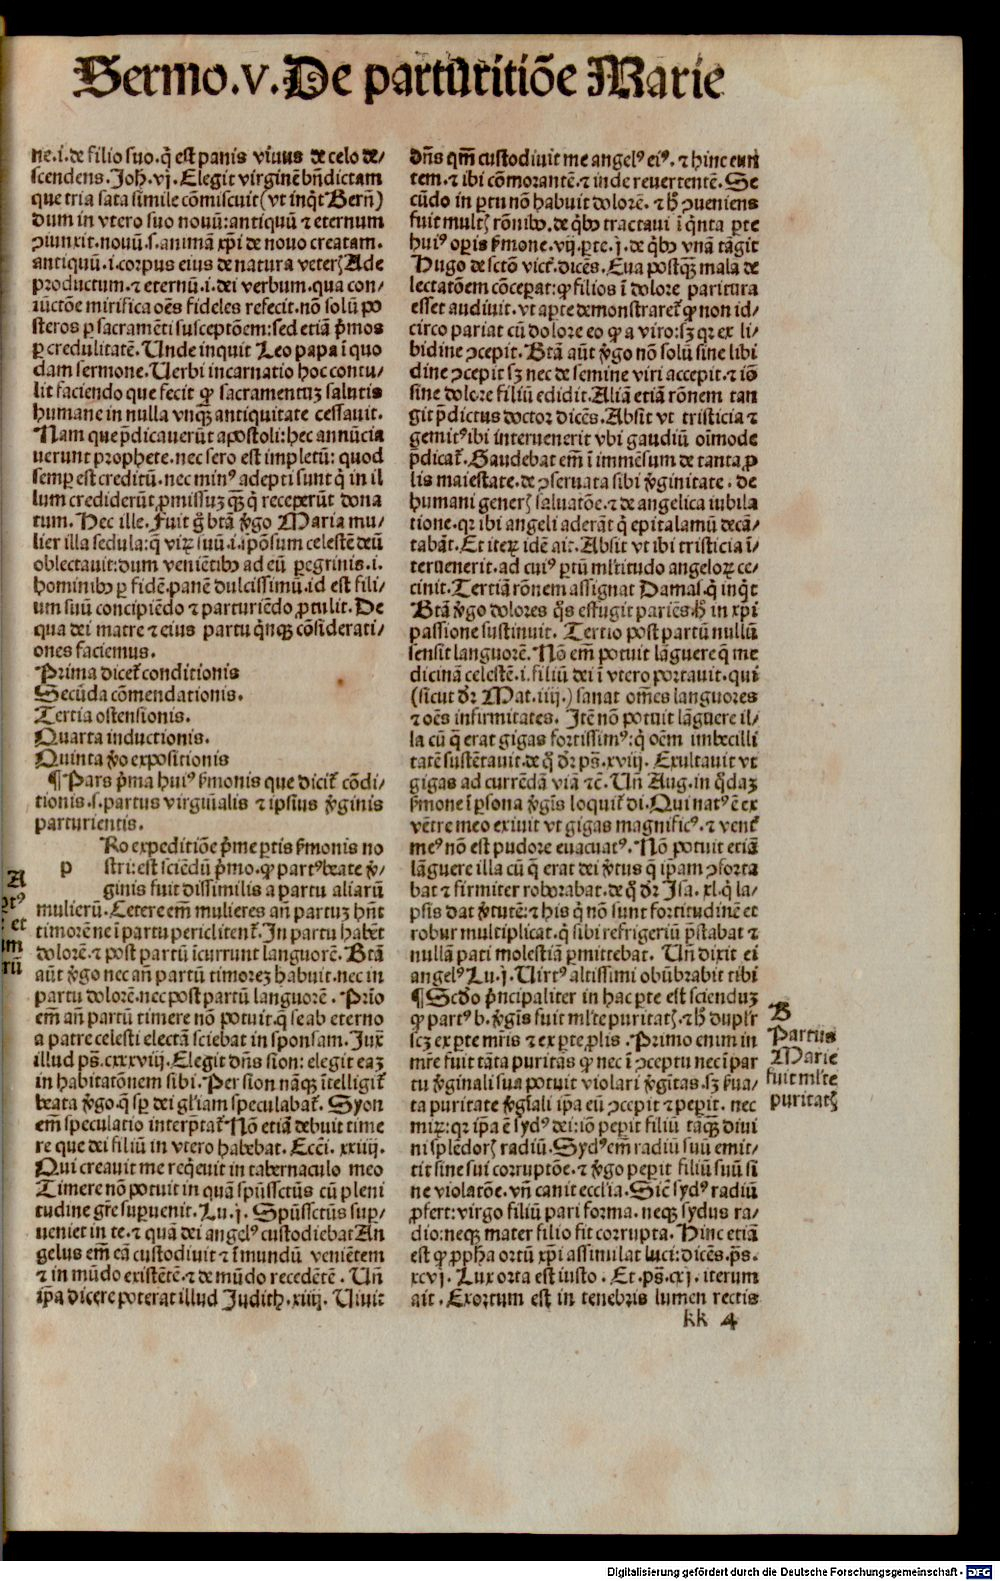 Sermo.v.De parturitiõe Marie
ne.i.de filio suo.q̃ est panis viuus de celo de/
scendens.Joh̃.vj.Elegit virginẽ bñdictam
que tria sata simile cõmiscuit (vt inq̃t Berñ)
dum in vtero suo nouũ: antiquũ ⁊ eternum
ꝯiunxit.nouũ.s.animã xp̃i de nouo creatam.
antiquũ.i.corpus eius de natura veterꝭ Ade
productum.⁊ eternũ.i.dei verbum.qua con/
iũctõne mirifica oẽs fideles refecit.nõ solũ po
steros ꝑ sacramẽti susceptõem: sed etiã p̃mos
ꝑ credulitatẽ.Unde inquit Leo papa ĩ quo
dam sermone.Uerbi incarnatio hoc contu/
lit faciendo que fecit ꝙ sacramentuꝫ salutis
humane in nulla vnqꝫ antiquitate cessauit.
Nam que p̃dicauerũt apostoli: hec annũcia
uerunt prophete.nec sero est impletũ: quod
semꝑ est creditũ.nec minꝰ adepti sunt q̃ in il
lum crediderũt ꝓmissuꝫ qꝫ̃ q̃ receperũt dona
tum. Hec ille.Fuit g̃ btã v̾go Maria mu/
lier illa sedula: q̃ viꝝ suũ.i.sponsum celestẽ deũ
oblectauit: dum veniẽtibꝰ ad eũ ꝑegrinis.i.
hominibꝰ ꝑ fidẽ.panẽ dulcissimũ.id est fili/
um suũ concipiẽdo ⁊ parturiẽdo ꝓtulit. De
qua dei matre ⁊ eius partu q̃nqꝫ cõsiderati/
ones faciemus.
Prima dicet᷑ conditionis
Secũda cõmendationis.
Tertia ostensionis.
Quarta inductionis.
Quinta v̾o expositionis
¶Pars p̃ma huiꝰ s̾monis que dicit᷑ cõdi/
tionis.s.partus virginalis ⁊ ipsius v̾ginis
parturientis.
p Ro expeditiõe p̃me ꝑtis s̾monis no
stri: est sciẽdũ p̃mo.ꝙ partꝰ beate v̾/
ginis fuit dissimilis a partu aliarũ
mulierũ.Cetere em̃ mulieres añ partuꝫ hñt
timorẽ ne ĩ partu periclitent᷑.In partu habẽt
dolorẽ.⁊ post partũ ĩcurrunt languorẽ. Btã
aũt v̾go nec añ partũ timoreꝫ habuit.nec in
partu dolorẽ.nec post partũ languorẽ. Prĩo
em̃ añ partũ timere nõ potuit.q̃ se ab eterno
a patre celesti electã sciebat in sponsam. Jux̃
illud ps̃.cxxxvij.Elegit dñs sion: elegit eaꝫ
in habitatõnem sibi.Per sion nãqꝫ ĩtelligit᷑
beata v̾go.q̃ sꝑ dei gl̃iam speculabat᷑. Syon
em̃ speculatio interp̃tat᷑ Nõ etiã debuit time
re que dei filiũ in vtero habebat. Ecci. xxiiij.
Qui creauit me req̃euit in tabernaculo meo
Timere nõ potuit in quã spũssctũs cũ pleni
tudine gr̃e suꝑuenit. Lu.j. Spũssctũs suꝑ/
ueniet in te.⁊ quã dei angelꝰ custodiebat An
gelus em̃ eã custodiuit ⁊ ĩ mundũ veniẽtem
⁊ in mũdo existẽtẽ.⁊ de mũdo recedẽtẽ. Uñ
ip̃a dicere poterat illud Judith.xiij. Uiuit
A
et
dñs qm̃ custodiuit me angelꝰ eiꝰ.⁊ hinc eun
tem.⁊ ibi cõmorantẽ.⁊ inde reuertentẽ. Se
cũdo in ꝑtu nõ habuit dolorẽ.⁊ h̾ ꝯueniens
fuit multꝭ rõnibꝰ.de q̃bꝰ tractaui ĩ q̃nta ꝑte
huiꝰ oꝑis s̾mone.vij.ꝑte.j.de q̃bꝰ vnã tãgit
Hugo de sctõ vict᷑.dicẽs.Eua postqꝫ̃ mala de
lectatõem cõceꝑat: ꝙ filios ĩ dolore paritura
esset audiuit.vt aꝑte demonstraret᷑ ꝙ non id/
circo pariat cũ dolore eo ꝙ a viro: sꝫ qꝛ ex li/
bidine ꝯcepit.Btã aũt v̾go nõ solũ sine libi
dine ꝯcepit sꝫ nec de semine viri accepit.⁊ iõ
sine dolore filiũ edidit.Aliã etiã rõnem tan
git p̃dictus doctor dicẽs.Absit vt tristicia ⁊
gemitꝰ ibi interuenerit vbi gaudiũ oĩmode
p̃dicat᷑.Gaudebat em̃ ĩ immẽsum de tanta ꝓ
lis maiestate.de ꝯseruata sibi v̾ginitate. de
humani generꝭ saluatõe.⁊ de angelica iubila
tione.qꝛ ibi angeli aderãt q̃ epitalamũ decã/
tabãt.Et iteꝝ idẽ ait.Absit vt ibi tristicia ĩ/
teruenerit.ad cuiꝰ ꝑtũ ml̃titudo angeloꝝ ce/
cinit.Tertiã rõnem assignat Damas̃.q̃ inq̃t
Btã v̾go dolores q̃s effugit pariẽs.h̾ in xp̃i
passione sustinuit. Tertio post partũ nullũ
sensit languorẽ. Nõ em̃ potuit lãguere q̃ me
dicinã celestẽ.i.filiũ dei ĩ vtero portauit.qui
(sicut dr̃ Mat.iiij.) sanat omẽs languores
⁊ oẽs infirmitates. Itẽ nõ potuit lãguere il/
la cũ q̃ erat gigas fortissimꝰ: q̃ oẽm imbecilli
tatẽ sustẽtauit.de q̃ dr̃ ps̃.xviij. Exultauit vt
gigas ad currẽdã viã ⁊c̃. Uñ Aug.in q̃daꝫ
s̾mone ĩ ꝑsona v̾gis̃ loquit᷑ di.Qui natꝰ ẽ ex
vẽtre meo exiuit vt gigas magnificꝰ.⁊ vent᷑
meꝰ nõ est pudore euacuatꝰ. Nõ potuit etiã
lãguere illa cũ q̃ erat dei v̾tus q̃ ip̃am ꝯforta
bat ⁊ firmiter roborabat.de q̃ dr̃ Isa.xl.q̃ la/
psis dat v̾tutẽ: ⁊ his q̃ nõ sunt fortitudinẽ et
robur multiplicat.q̃ sibi refrigeriũ p̃stabat ⁊
nullã pati molestiã ꝑmittebat. Uñ dixit ei
angelꝰ Lu.j.Uirtꝰ altissimi obũbrabit tibi
¶Scd̾o p̃ncipaliter in hac ꝑte est sciendũ
ꝙ partꝰ b.v̾gis̃ fuit ml̃te puritatꝭ.⁊ h̾ dupl̃r
scꝫ ex ꝑte mr̃is ⁊ ex ꝑte ꝓlis. Primo enim in
mr̃e fuit tãta puritas ꝙ nec ĩ ꝯceptu nec ĩ par
tu v̾ginali sua potuit violari v̾gĩtas.sꝫ s̾ua/
ta puritate v̾gĩali ip̃a eũ ꝯcepit ⁊ peꝑit. nec
miꝝ: qꝛ ip̃a ẽ sydꝰ dei: iõ peꝑit filiũ tãqꝫ̃ diui
ni splẽdorꝭ radiũ.Sydꝰ em̃ radiũ suũ emit/
tit sine sui corruptõe.⁊ v̾go peꝑit filiũ suũ si
ne violatõe.vñ canit ecclia.Sic̃ sydꝰ radiũ
ꝓfert: virgo filiũ pari forma.neqꝫ sydus ra/
dio: neqꝫ mater filio fit corrupta. Hinc etiã
est ꝙ ꝓpha ortũ xp̃i assimulat luci: dicẽs.ps̃.
xcvj. Lux orta est iusto. Et.ps̃.cxj.iterum
ait.Exortum est in tenebris lumen rectis
B
Partus
Marie
fuit ml̃te
puritatꝭ
kk 4
Digitalisierung gefördert durch die Deutsche Forschungsgemeinschaft - DFG